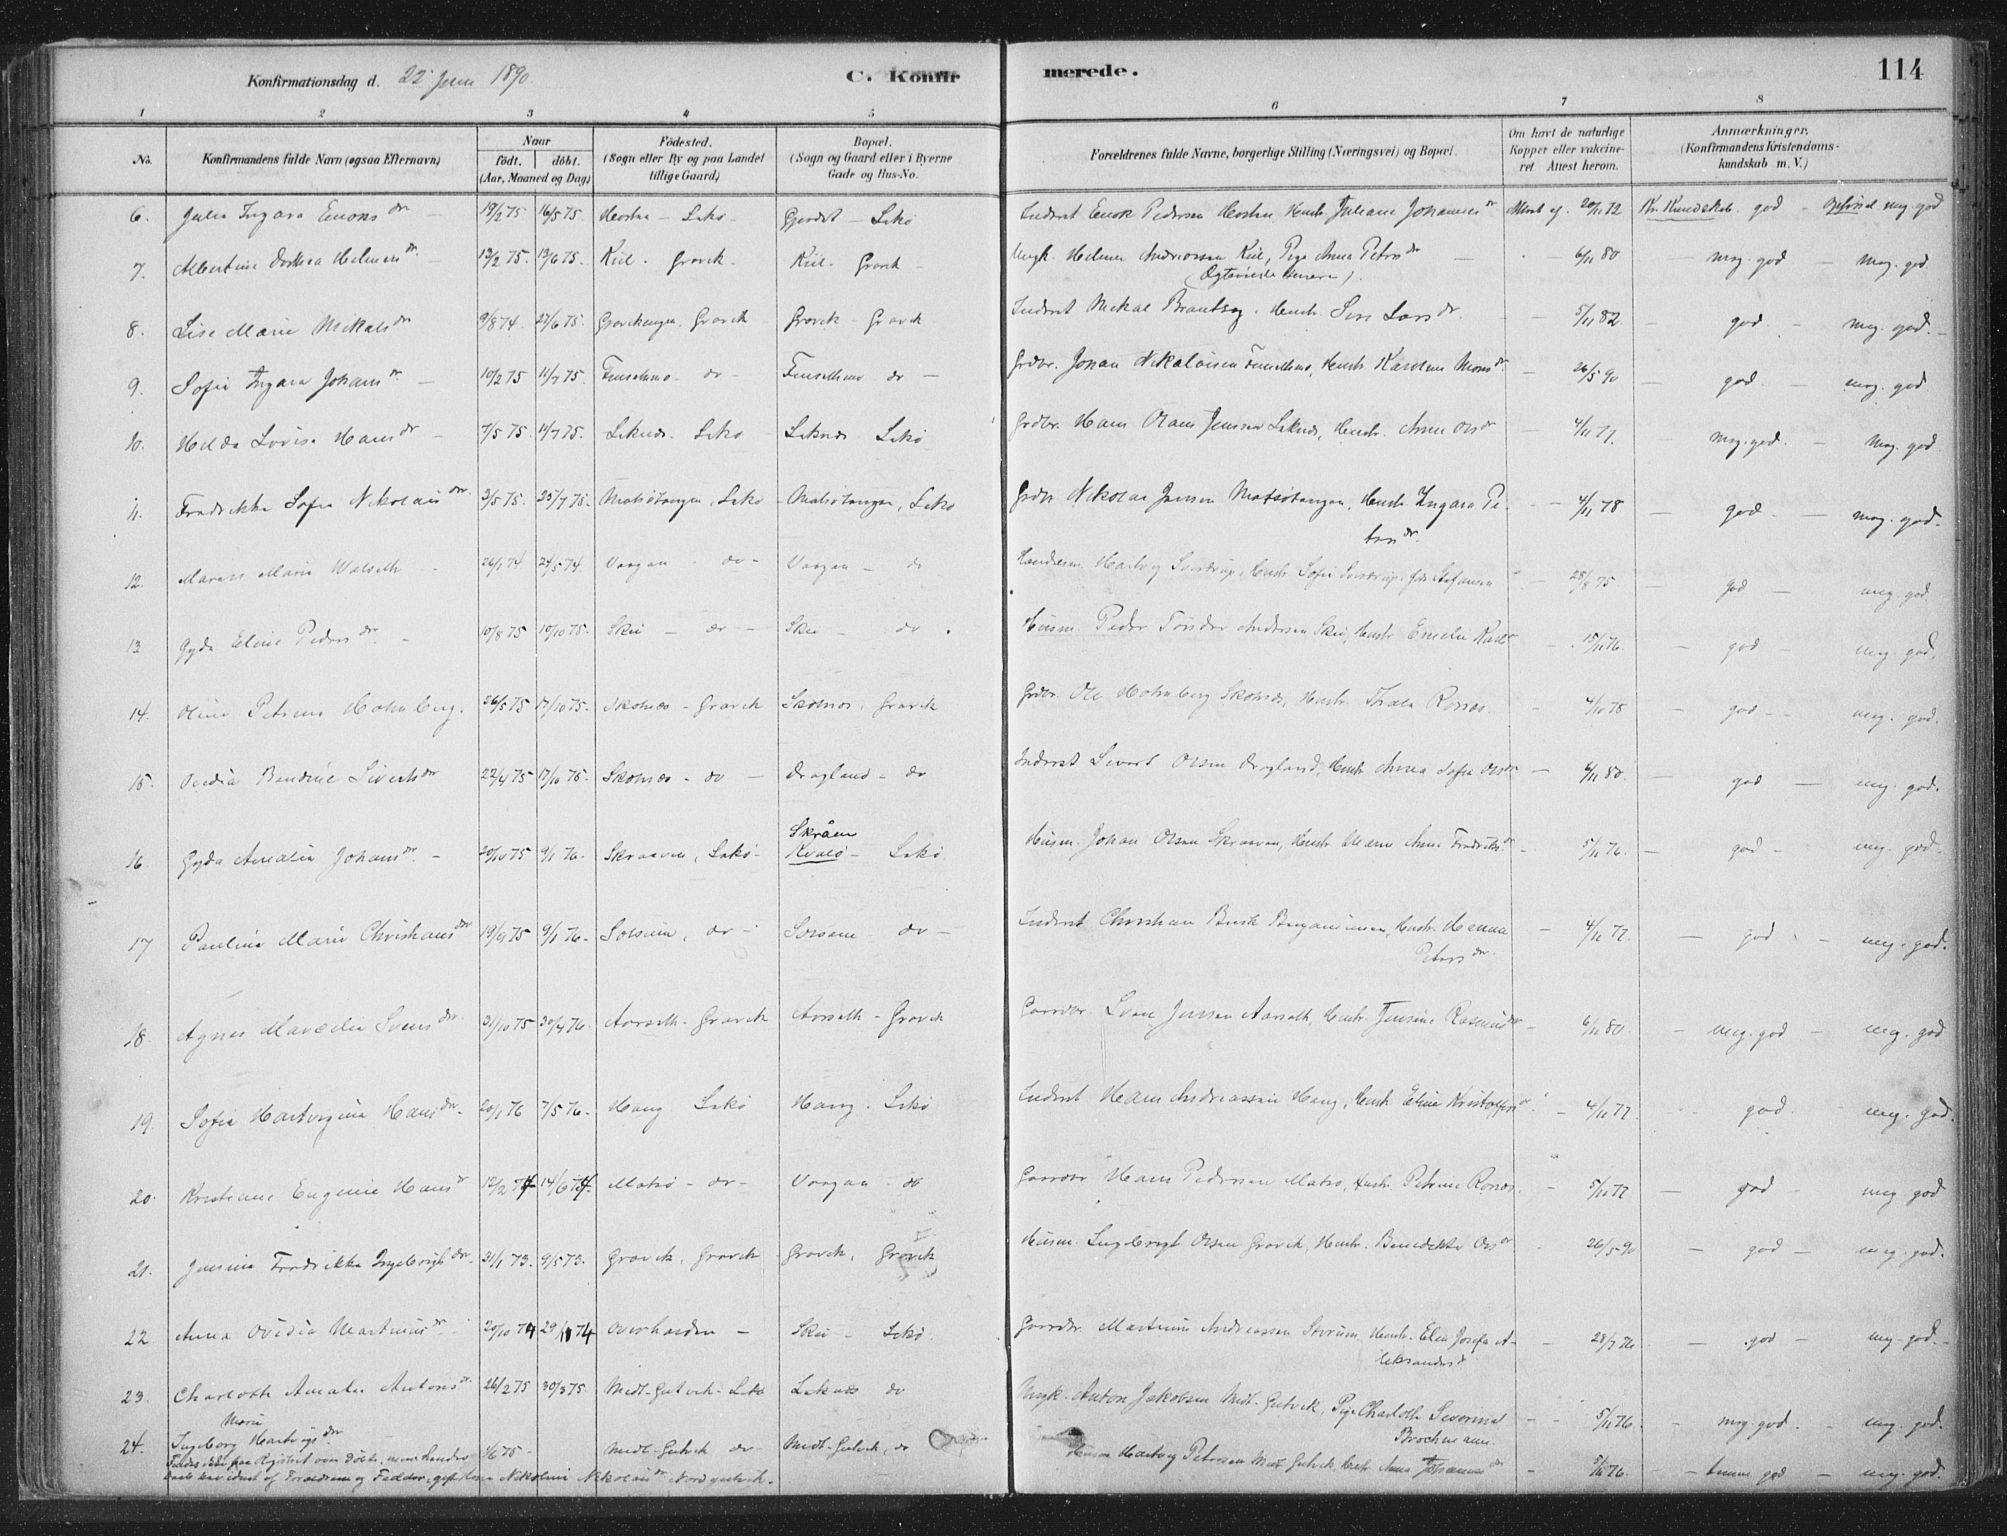 Konfirmationsdag d. 22 Juni 1890.
C. Konfirmerede.
114
1 2 3 4 5 6 7 8
No.
Konfirmandens fulde Navn (ogsaa Efternavn)
Naar
födt. döbt.
(Aar, Maaned og Dag)
Födested.
(Sogn eller By og paa Landet
tillige Gaard)
Bopæl.
(Sogn og Gaard eller i Byerne
Gade og Hus-No.
Forældrenes fulde Navne, borgerlige Stilling (Næringsvei) og Bopæl.
Om havt de naturlige
Kopper eller vakcine-
ret Attest herom.
Anmærkninger.
(Konfirmandens Kristendoms-
kundskab m. V.)
6. Julie Ingara Enoks dr 19/2 75 16/5 75 Hortna - Lekö Gjerdet - Lekö Inderst Enok Pedersen Hustr. Juliane Johannes dr Attest af 20/11 72 Kr. Kundskab god - Opförsel meg. god
7. Albertine Dorthea Helmers dr 13/2 75. 13/6 75. Kiil. Gravik. Kiil. Gravik Ungk. Helmer Andreassen Kiil, Pige Anna Peters dr 6/11 80 - meg. god - meg. god.
(Ægteviede senere).
8. Lise Marie Mikals dr 9/8 74. 27/6 75. Gravikengen. Gravik Gravik - Gravik Inderst Mikal Hustr. Lars dr. 5/11 82 - god - meg. god.
9. Sofie Ingara Johans dr. 10/2 75 11/7 75. do do Grdbr. Johan Nikolaisen Hustr Karoline Mons dr 26/5 90 - god. - meg. god
10. Hilda Lovise Hans dr 7/5 75. 11/7 75. Leknes. Lekö Leknes Lekö Grdbr. Hans Olaus Jensen Leknes, Hustr. Anne Ols dr 4/11 77. - meg. god. - meg. god
11. Fredrikke Sofie Nikolais dr. 3/5 75. 25/7 75. Matsötangen, Lekö Matsötangen, Lekö Grdbr Nikolai Jensen Matsötangen, Hustr Ingara Pe- 4/11 78 - god - meg. god.
ters dr.
12. Maren Marie Walseth 26/1 74 24/5 74. Vaagan - do - Vaagan - do Hartvig Sverdrup, Hustr Sofie Sverdrup 28/8 75 - god - meg. god
13 Gyda Eline Peders dr 10/8 75 10/10 75. Skei - do - Skei - do. Husm. Peder Andersen Skei, Hustr Emelie 15/11 76. - god - meg. god.
14. Oline Petrine Holmberg. 26/5 75 17/10 75. Skotnes - Gravik Skotnes, Gravik Grdbr. Ole Holmberg Skotnes, Hustr. 4/10 78 - god - meg. god.
15. Ovidia Bendine Siverts dr 22/4 75 17/10 75. Skotnes - do - Dragland - do Inderst Sivert Olsen Dragland, Hustr Anna Sofie Ols dr - 6/11 80. - god - meg. god.
16. Gyda Amalia Johans dr. - 20/10 75 9/1 76. Skraaven, Lekö - Skråen Kvalö - Lekö. Husm. Johan Olsen Skraaven, Hustr Maren Anna Fredriks dr - 5/11 76. - god - meg. god.
17 Pauline Marie Christians dr 19/9 75 9/1 76. Solsem, do - Solsem do - Inderst Christian Busk Benjaminsen, Hustr. Hanna - 4/11 77. - god - meg. god.
Peters dr.
18. Agnes Marcelie Svens dr. 31/10 75 30/4 76. Aarseth - Gravik Aarseth - Gravik Gaardbr Sven Jensen Aarseth, Hustr. Jensine Rasmus dr - 6/11 80. - meg. god - meg. god
19. Sofie Hartvigine Hans dr. 20/1 76 7/5 76. Haug Lekö Haug. Lekö Inderst Hans Andreassen Haug, Hustr. Eline Kristoffers dr - 4/11 77. god. - meg. god.
20. Kristiane Eugenie Hans dr 12/2 74 14/6 74. Matsö - do - Vaagan - do Gaardbr Hans Pedersen Matsö, Hustr. Petrine - 5/11 77 - god - meg. god
21. Jensine Fredrikke Ingebrigts dr. 31/1 73. 9/5 73. Gravik, Gravik Gravik, Gravik Husm. Ingebrigt Olsen Gravik, Hustr. Benedikte Ols dr 26/5 90 - god - meg. god.
22. Anna Ovidia Martinus dr. 20/10 74 29/11 74 Overhalden - Skei - Lekö. Gaardbr. Martinus Andreassen Hustr. Elen Josefa A- - 28/7 76 - god - meg. god.
leksanders dr
23. Charlotte Amalie Antons dr 26/2 75 30/3 75. Midt-Gutvik - Lekö Leknes do Ungk. Anton Jakobsen Midt-Gutvik, Pige Charlotte Severine - 5/11 76. - meg. god. - meg. god.
Brochmann.
24. Ingeborg Marie Hartvigs dr 1/6 75 - Midt-Gutvik do - Midt-Gutvik, do Husm Hartvig Petersen Midt Gutvik, Hustr Anna Johannes dr - 5/11 76. - temm. god - meg. god.
Findes ikke paa Registret over Döbte, men
af Forældrene og Fadder, gift Kone Nikoline Nikolais dr Nordgutvik.